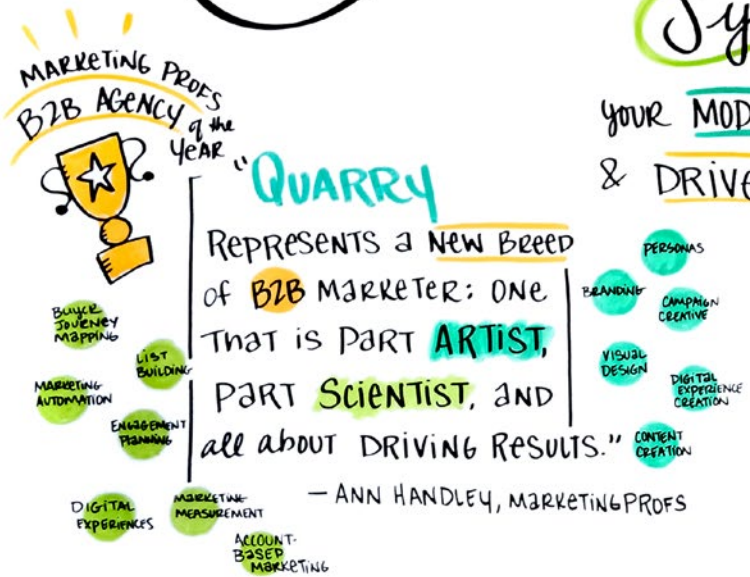 MARKETING PROFS
B2B AGENCY
of the
YEAR
"QUARRY
REPRESENTS a NEW BREED
OF B2B MARKETER: ONE
THAT is PART ARTIST,
PART SCIENTIST, AND
all about DRIVING RESULTS."
— ANN HANDLEY, MARKETINGPROFS
BUYER
JOURNEY
MAPPING
LIST
BUILDING
MARKETING
AUTOMATION
ENGAGEMENT
PLANNING
DIGITAL
EXPERIENCES
MARKETING
MEASUREMENT
ACCOUNT-
BASED
MARKETING
YOUR MOD
& DRIVE
PERSONAS
BRANDING
CAMPAIGN
CREATIVE
VISUAL
DESIGN
DIGITAL
EXPERIENCE
CREATION
CONTENT
CREATION